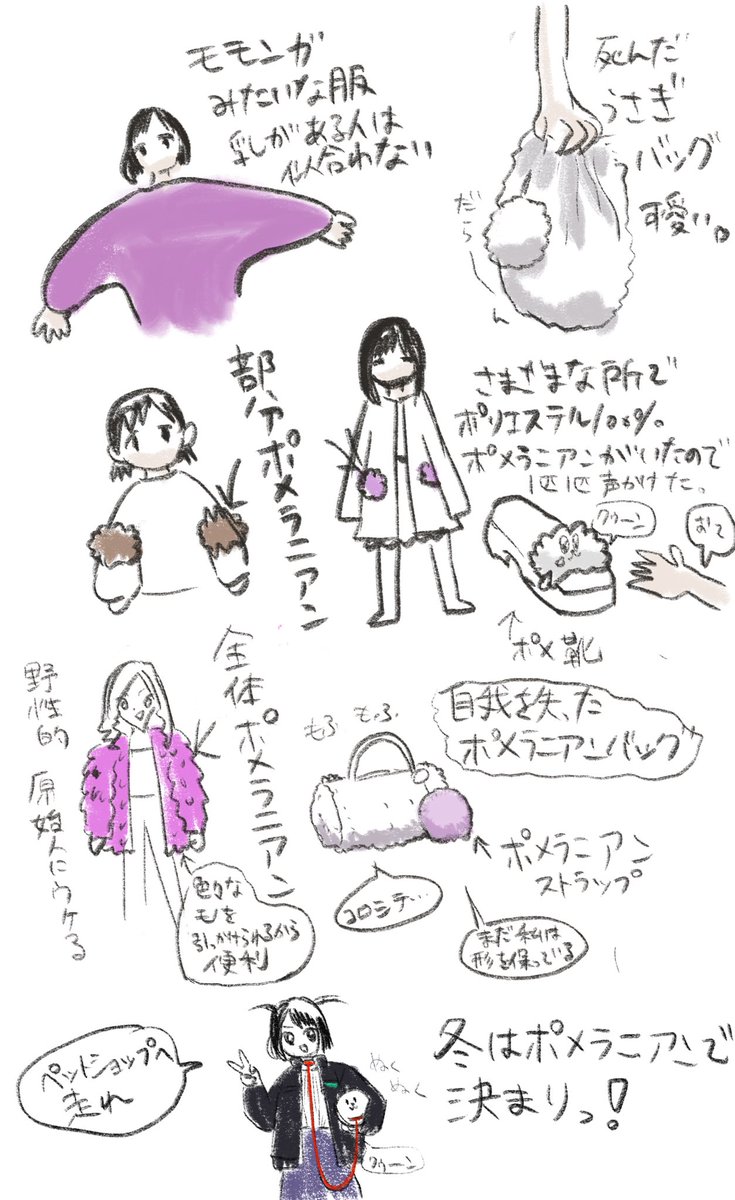 モモンガ
みたいな服
乳がある人は
似合わない
死んだ
うさぎ
バッグ
可愛い。
だらーん
部分ポメラニアン
さまざまな所で
ポリエステル100%。
ポメラニアンがいたので
1匹1匹声かけた。
クゥーン
おて
ポメ靴
全体ポメラニアン
野性的 原始人にウケる
色々な
モノを
引っかけられるから
便利
もふ もっふ
自我を失った
ポメラニアンバッグ
ポメラニアン
ストラップ
コロシテ…
まだ私は
形を保っている
ペットショップへ
走れ
ぬく
ぬく
クゥーン
冬はポメラニアンで
決まりっ!